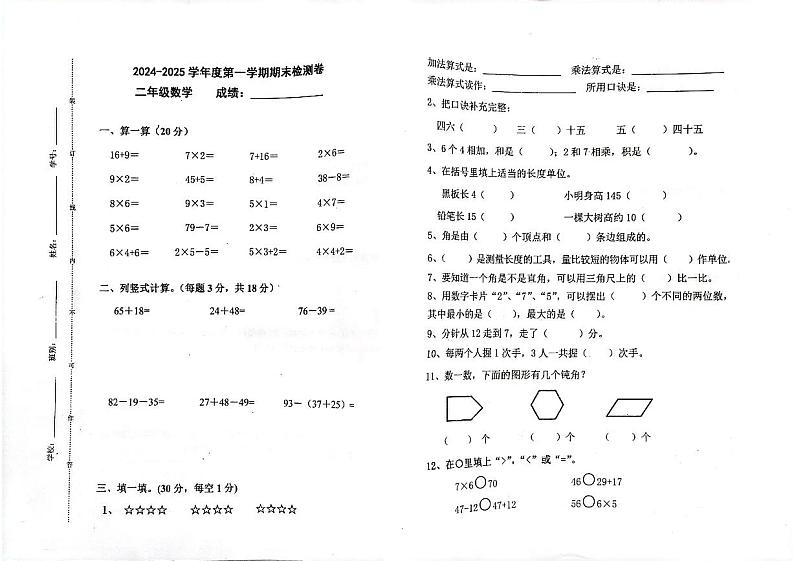 2024-2025学年度第一学期期末检测卷
二年级数学 成绩：
一、算一算（20分）
16+9＝ 7×2＝ 7+16＝ 2×6＝
9×2＝ 45÷5＝ 8÷4＝ 38-8＝
8×6＝ 9×3＝ 5×1＝ 4×7＝
5×6＝ 79-7＝ 2×3＝ 6×9＝
6×4+6＝ 2×5-5＝ 5×3+2＝ 4×4+2＝
二、列竖式计算。（每题3分，共18分）
65+18= 24+48= 76-39=
82-19-35= 27+48-49= 93-（37+25）=
三、填一填。（30分，每空1分）
1、☆☆☆☆ ☆☆☆☆ ☆☆☆☆
学校： 班别： 姓名： 学号：
装 订 线 内 不 可 作 答
加法算式是： 乘法算式是：
乘法算式读作： 所用口诀是：
2、把口诀补充完整：
四六（ ） 三（ ）十五 五（ ）四十五
3、6个4相加，和是（ ）；2和7相乘，积是（ ）。
4、在括号里填上适当的长度单位。
黑板长4（ ） 小明身高145（ ）
铅笔长15（ ） 一棵大树高约10（ ）
5、角是由（ ）个顶点和（ ）条边组成的。
6、（ ）是测量长度的工具，量比较短的物体可以用（ ）作单位。
7、要知道一个角是不是直角，可以用三角尺上的（ ）比一比。
8、用数字卡片“2”、“7”、“5”，可以摆出（ ）个不同的两位数，
其中最小的是（ ），最大的是（ ）。
9、分针从12走到7，走了（ ）分。
10、每两个人握1次手，3人一共握（ ）次手。
11、数一数，下面的图形有几个钝角？
（ ）个 （ ）个 （ ）个
12、在○里填上“>”、“<”或“=”。
7×6○70 46○29+17
47-12○47+12 56○6×5